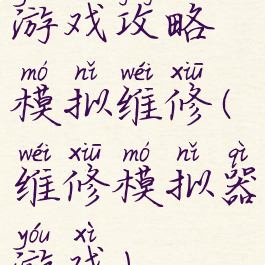 游戏攻略
mó nǐ wéi xiū
模拟维修(
wéi xiū mó nǐ qì
维修模拟器
yóu xì
游戏)